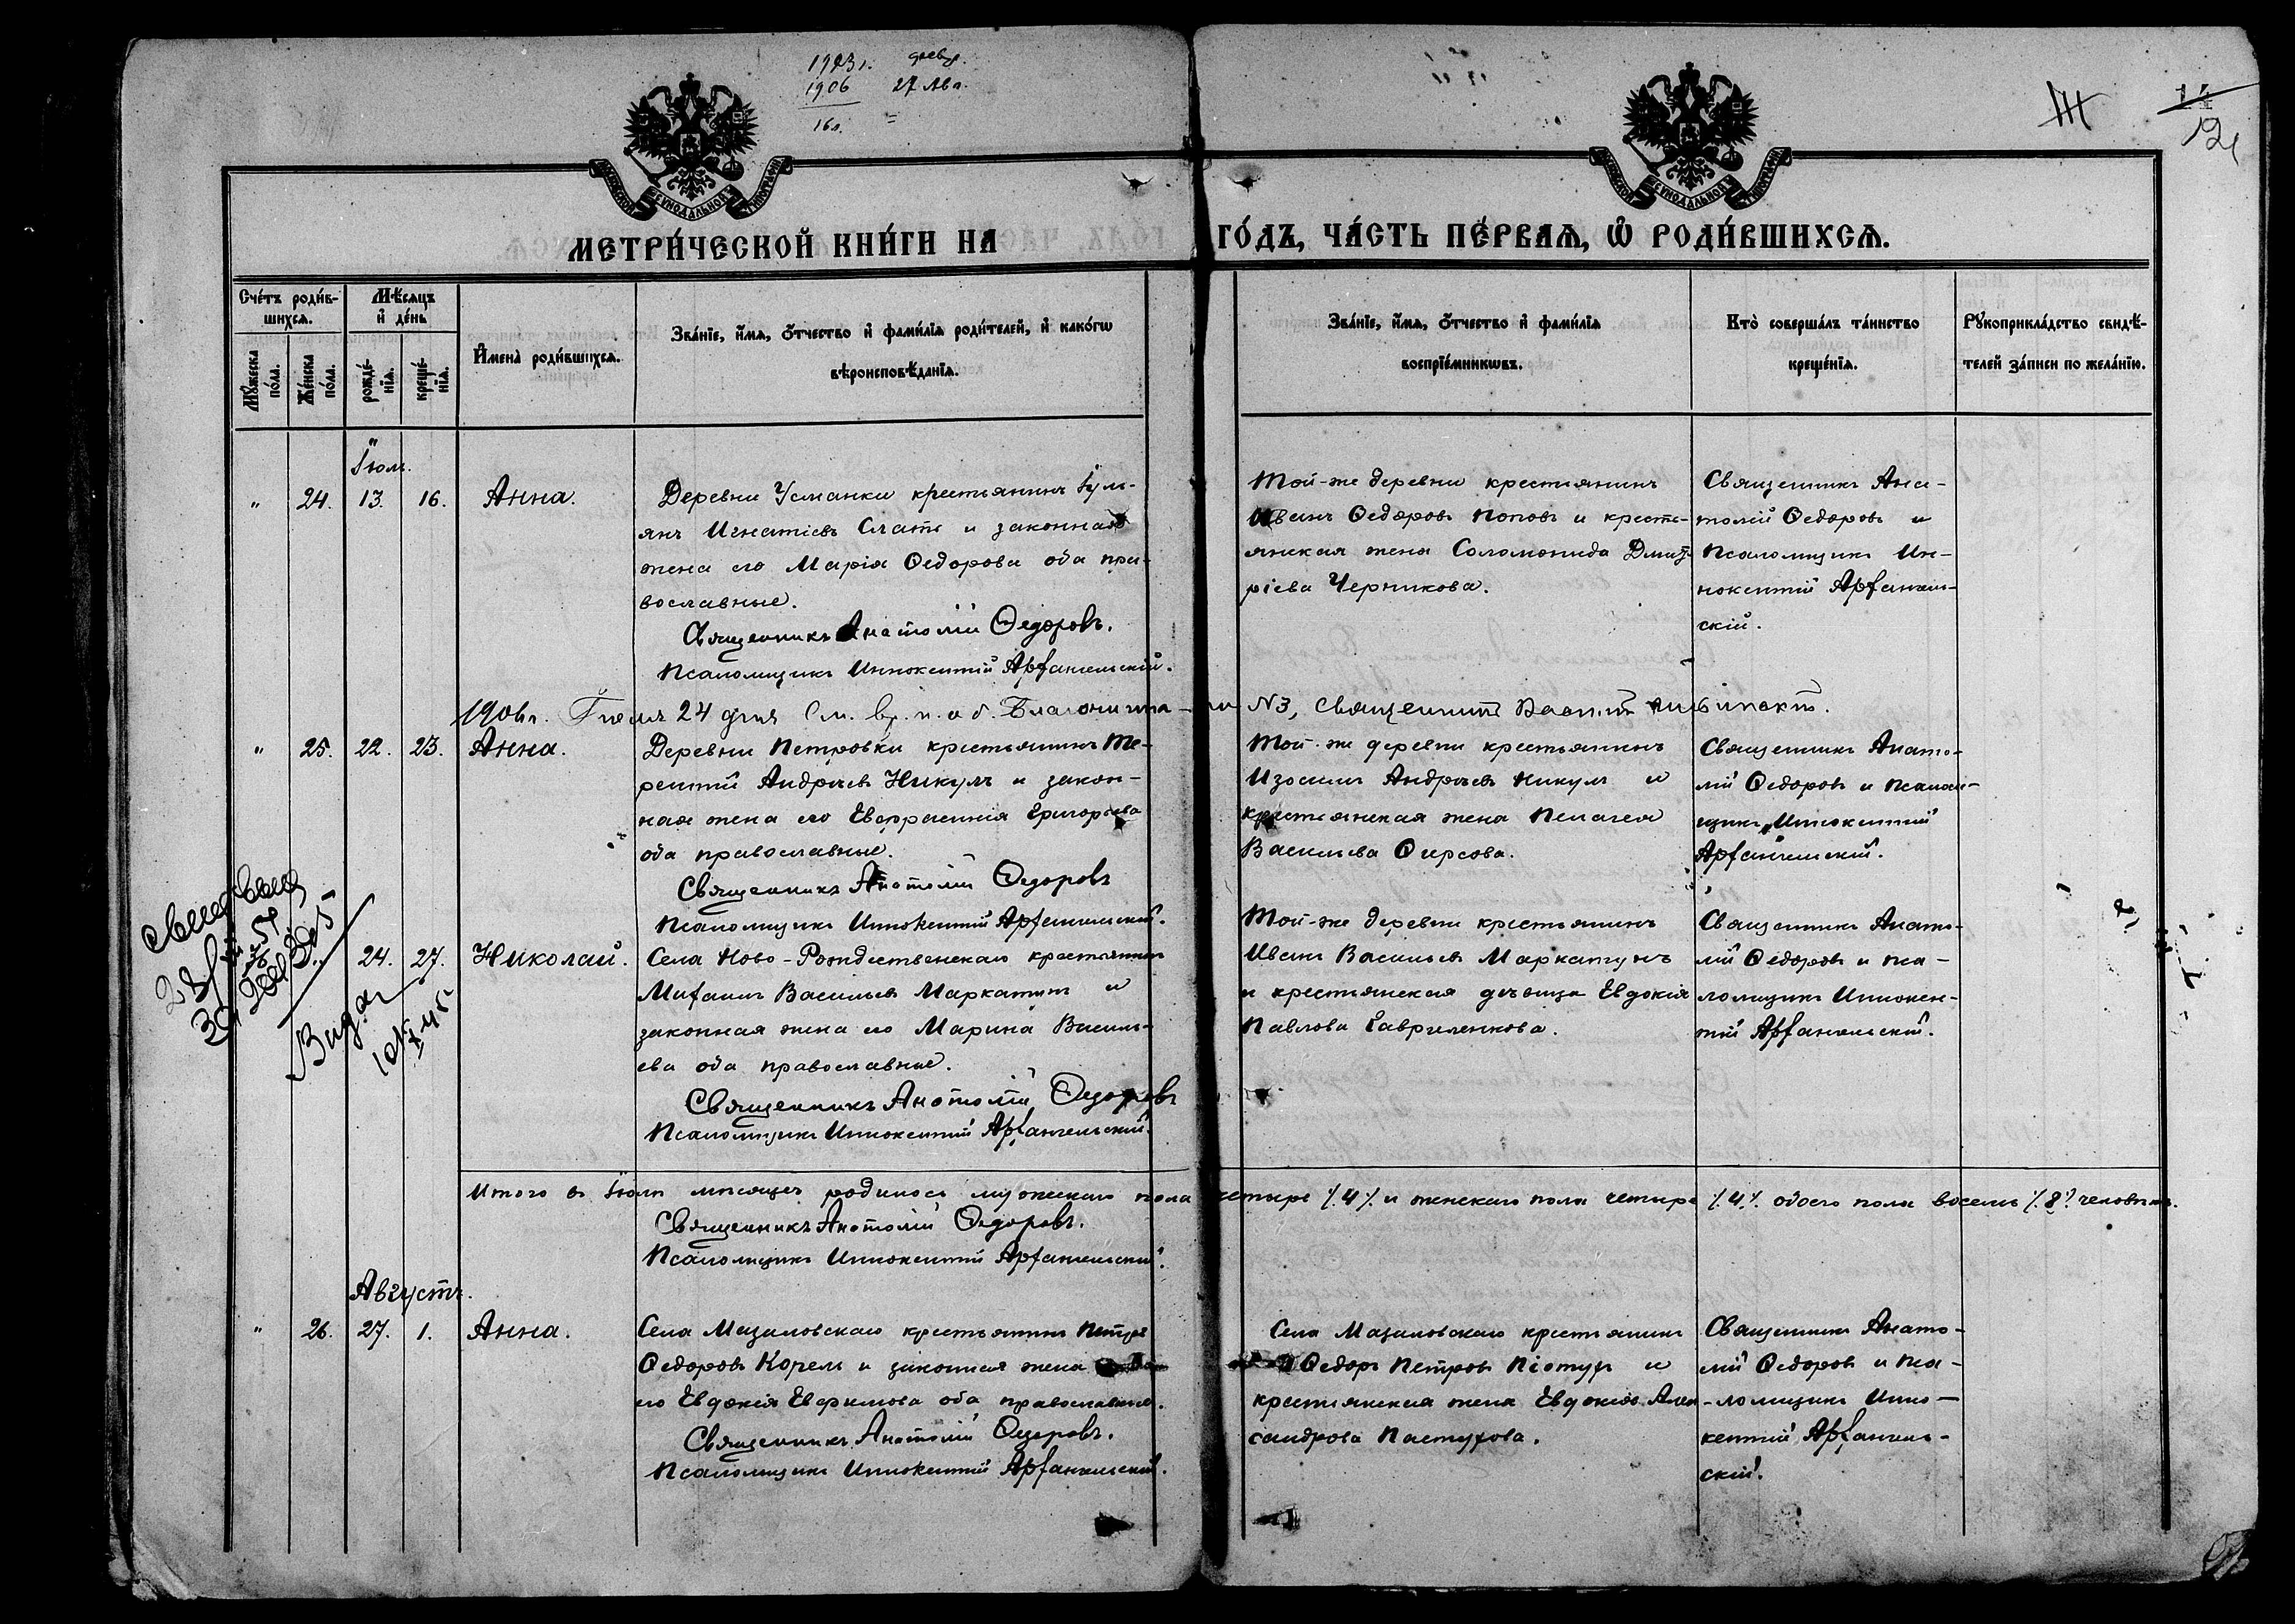 1923 г.
1906 27 Ав
16 л.
14
12
МЕТРИ́ЧЕСКОЙ КНИ́ГИ НА ГО́ДЪ, ЧА́СТЬ ПЕ́РВАѦ, Ѡ РОДИ́ВШИХСѦ.
Сче́тъ роди́в-
шихсѧ.
Мꙋ́жеска по́ла.
Же́нска по́ла.
Мѣ́сѧцъ и де́нь
рожде́-
нїѧ.
креще́-
нїѧ.
Имена̀ роди́вшихсѧ.
Зва́нїе, и́мѧ, ѻ́тчество и фами́лїѧ роди́телей, и како́гѡ
вѣроисповѣ́данїѧ.
Зва́нїе, и́мѧ, ѻ́тчество и фами́лїѧ
воспрїе́мникѡвъ.
Кто̀ соверша́лъ та́инство
креще́нїѧ.
Рꙋкоприкла́дство свидѣ́-
телей за́писи по жела́нїю.
Іюль.
" 24. 13. 16. Анна.
Деревни Усманки крестьянинъ Іул-
янъ Игнатіевъ Слать и законная
жена его Марія Ѳедорова оба пра-
вославные.
Священникъ Анатолій Ѳедоровъ.
Псаломщикъ Иннокентій Архангельскій.
Той-же деревни крестьянинъ
Иванъ Ѳедоровъ Поповъ и кресть-
янская жена Соломонида Дмит-
ріева Черникова.
Священникъ Ана-
толій Ѳедоровъ и
Псаломщикъ Ин-
нокентій Архангель-
скій.
1906 г. Іюля 24 дня См. вр. и. об. Благочинна N3, Священникъ
" 25. 22. 23. Анна.
Деревни Петровки крестьянинъ Те-
рентій Андреевъ Никулъ и закон-
ная жена его Евфросинія Григорьева
оба православные.
Священникъ Анатолій Ѳедоровъ
Псаломщикъ Иннокентій Архангельскій.
Той-же деревни крестьянинъ
Изосимъ Андреевъ Никулъ и
крестьянская жена Пелагея
Васильева Ѳирсова.
Священникъ Анато-
лій Ѳедоровъ и Псалом-
щикъ Иннокентій
Архангельскій.
24. 27. Николай.
Села Ново-Рождественскаго крестьянинъ
Михаилъ Васильевъ Маркатунъ и
законная жена его Марина Василь-
ева оба православные.
Священникъ Анатолій Ѳедоровъ
Псаломщикъ Иннокентій Архангельскій.
Той-же деревни крестьянинъ
Иванъ Васильевъ Маркатунъ
и крестьянская дѣвица Евдокія
Павлова Гавриленкова.
Священникъ Анато-
лій Ѳедоровъ и Пса-
ломщикъ Иннокен-
тій Архангельскій.
Итого въ Іюлѣ мѣсяцѣ родилось мужескаго пола четыре /.4./ и женскаго пола четыре /.4./ обоего пола восемь /.8./ человѣкъ.
Священникъ Анатолій Ѳедоровъ.
Псаломщикъ Иннокентій Архангельскій.
Августъ.
" 26. 27. 1. Анна.
Села Мазаловскаго крестьянинъ Петръ
Ѳедоровъ Корель и законная жена
его Евдокія Евфимова оба православные.
Священникъ Анатолій Ѳедоровъ.
Псаломщикъ Иннокентій Архангельскій.
Села Мазаловскаго крестьянинъ
Ѳедоръ Петровъ Пѣтухъ и
крестьянская жена Евдокія Алек-
сандрова Пастухова.
Священникъ Анато-
лій Ѳедоровъ и Пса-
ломщикъ Инно-
кентій Архангель-
скій.